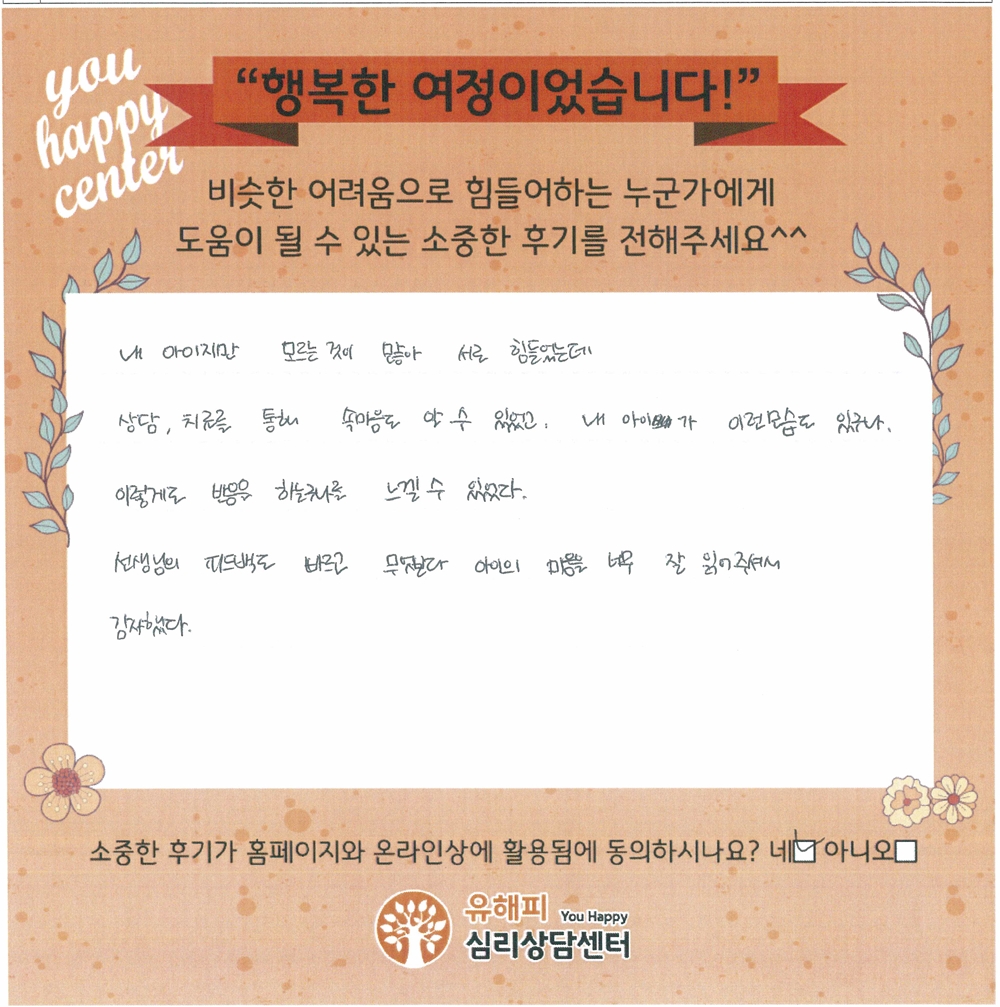 you
happy
center
“행복한 여정이었습니다!”
비슷한 어려움으로 힘들어하는 누군가에게
도움이 될 수 있는 소중한 후기를 전해주세요^^
내 아이지만 모르는 것이 많아 서로 힘들었는데
상담, 치료를 통해 속마음도 알 수 있었고, 내 아이가 이런모습도 있구나,
이렇게도 반응을 하는구나를 느낄 수 있었다.
선생님의 피드백도 빠르고 무엇보다 아이의 마음을 너무 잘 읽어주셔서
감사했다.
소중한 후기가 홈페이지와 온라인상에 활용됨에 동의하시나요? 네 아니오
유해피 You Happy
심리상담센터